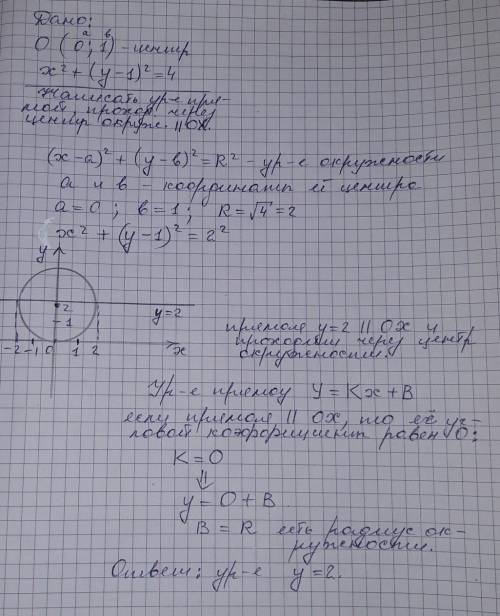 Дано:
a в
О (0; 1) - центр
x² + (y-1)² = 4
Написать ур-е пря-
мой, проход. через
центр окруж. || ОХ.
(x-a)² + (y-в)² = R² - ур-е окружности
a и в - координаты её центра
a = 0 ; в = 1 ; R = √4 = 2
x² + (y-1)² = 2²
y
2
1
y=2
-2 -1 0 1 2 x
прямая y=2 || Ox и
проходит через центр
окружности.
Ур-е прямой y = Kx + B
если прямая || ОХ, то её уг-
ловой коэффициент равен 0:
K = 0
⇓
y = 0 + B
B = R есть радиус ок-
ружности.
Ответ: ур-е y = 2.